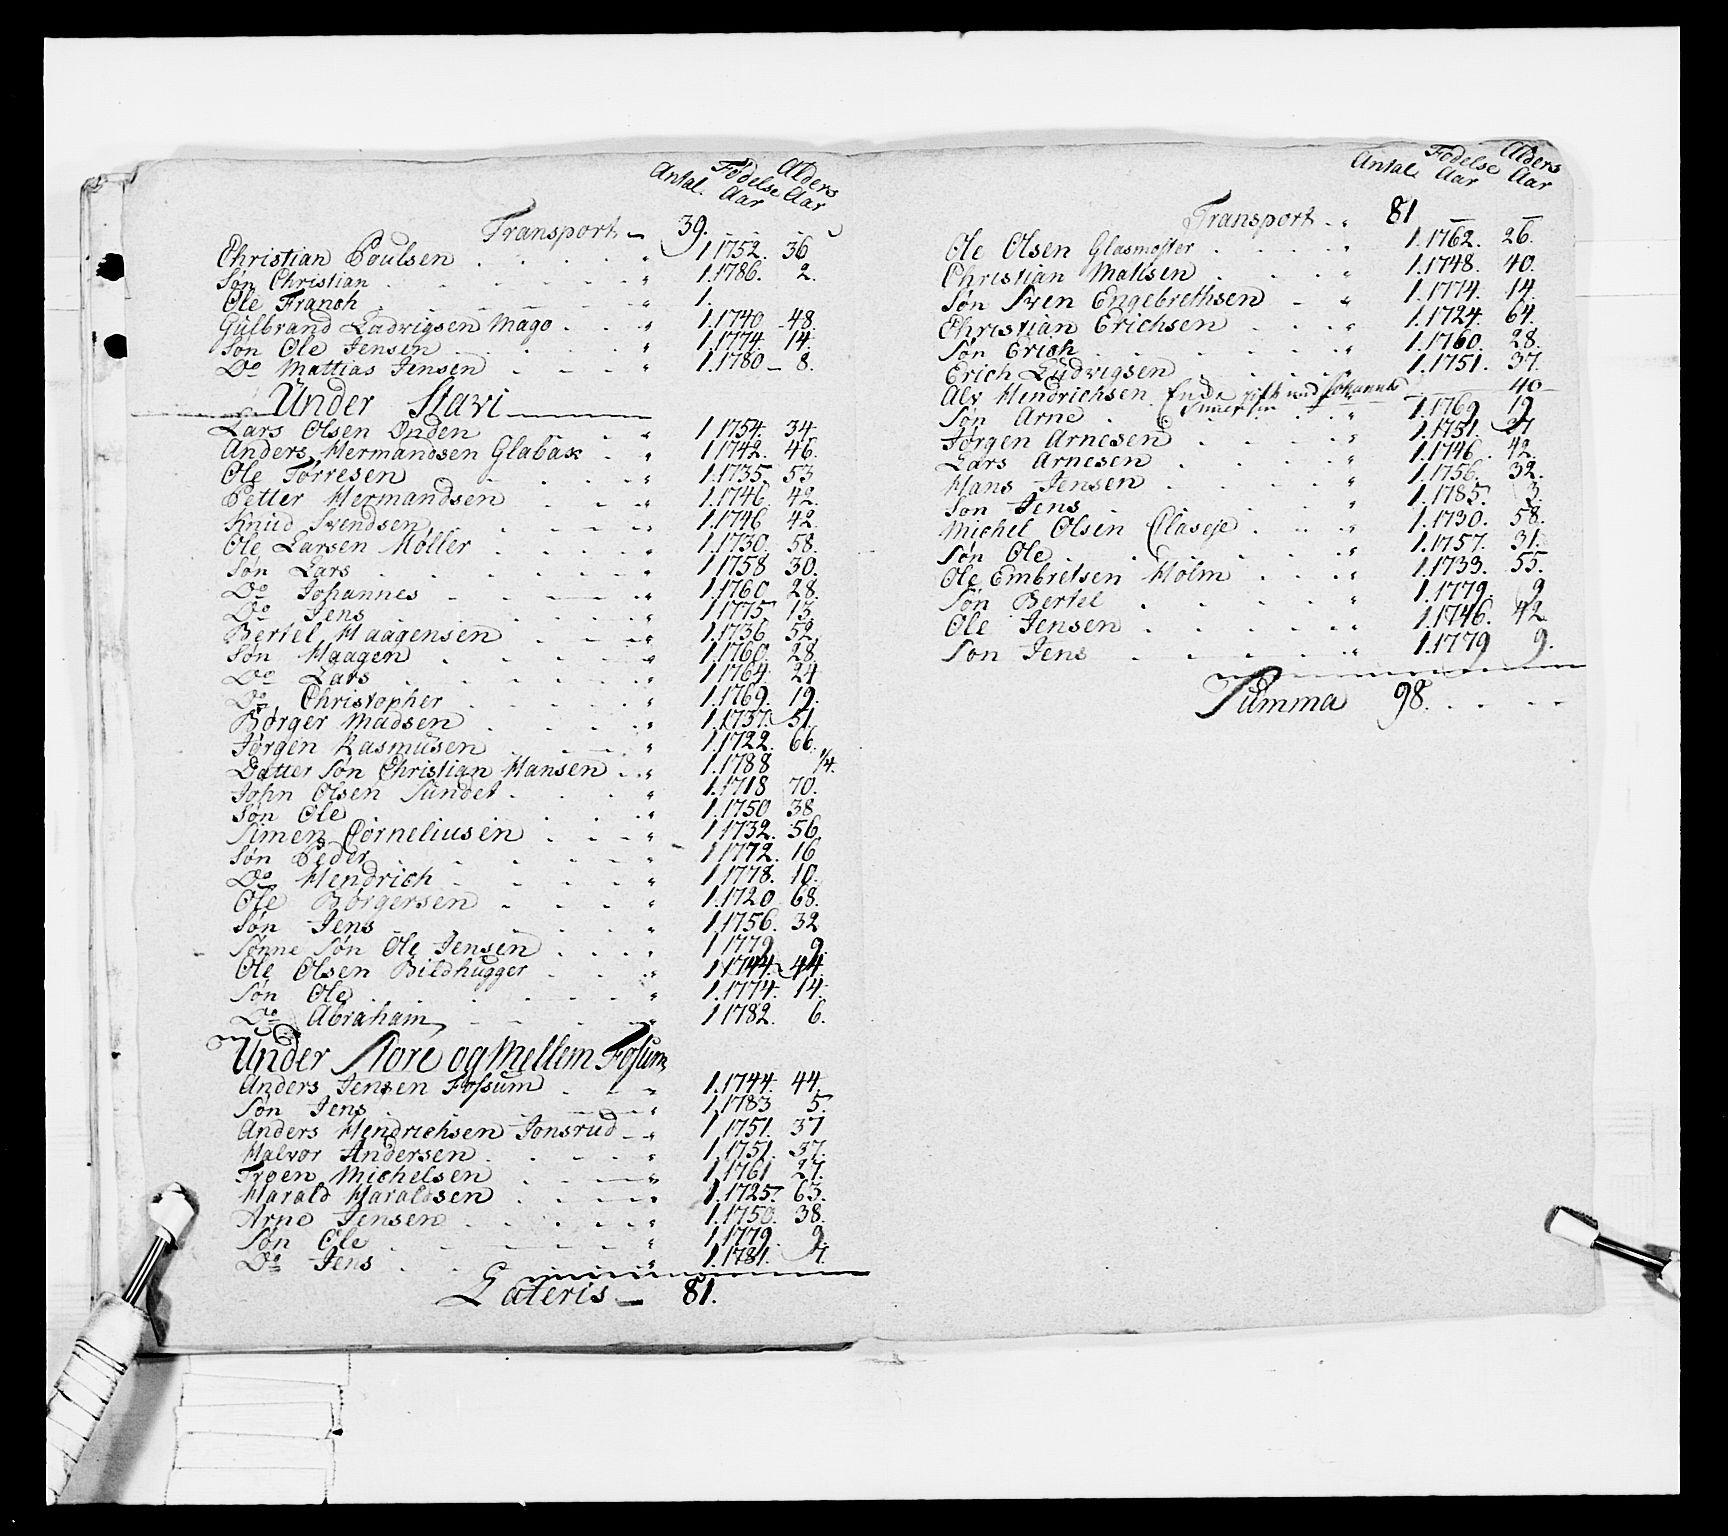 Antal. Fødelse Aar Alders Aar
Transport 39.
Christian Poulsen 1. 1752. 36
Søn Christian 1. 1786. 2.
Ole Franch 1.
Gülbrand Ladvigsen Mago 1. 1740 48.
Søn Ole Jensen 1. 1774. 14.
Do Mattias Jensen 1. 1780 8.
Under Slavi
Lars Olsen Onden 1 1754. 34
Anders Hermandsen Glabak 1 1742. 46.
Ole Tørresen 1. 1735. 53
Petter Hermandsen 1. 1746. 42.
Knud Svendsen 1. 1746 42.
Ole Larsen Møller 1. 1730. 58.
Søn Lars 1 1758 30.
Do Johannes 1. 1760 28.
Do Jens 1. 1775 13
Bertel Haagensen 1. 1736 52.
Søn Haagen 1. 1760. 28.
Do Lars 1 1764. 24
Do Christopher 1. 1769. 19.
Børger Madsen 1. 1737. 51.
Jørgen Rasmusen 1. 1722. 66.
Datter Søn Christian Hansen 1. 1788 1/4.
John Olsen Sundet 1. 1718 70.
Søn Ole 1. 1750 38
Simen Corneliusen 1 1732. 56
Søn Peder 1 1772. 16
Do Hendrich 1 1778. 10.
Ole Børgersen 1. 1720 68.
Søn Jens 1. 1756. 32
Sønne Søn Ole Jensen 1 1779 9.
Ole Olsen Bildhugger 1 1744. 44.
Søn Ole 1. 1774. 14.
Do Abraham 1 1782. 6.
Under Store og Mellem Fossum
Anders Jensen Fossum 1. 1744. 44.
Søn Jens 1. 1783 5.
Anders Hendrichsen Jonsrud 1 1751. 37
Halvor Andersen 1. 1751. 37.
Troen Michelsen 1. 1761 27.
Harald Haraldsen 1. 1725. 63.
Arne Jensen 1. 1750. 38.
Søn Ole 1. 1779. 9.
Do Jens 1. 1781. 7.
Lateris 81.
Antal Fødelse Aar Alders Aar
Transport 81
Ole Olsen Glasmoster 1. 1762. 26.
Christian Matisen 1. 1748. 40.
Søn Sven Engebrethsen 1. 1774. 14.
Christian Erichsen 1. 1724. 64.
Søn Erich 1. 1760. 28.
Erich Ludvigsen 1. 1751. 37.
Alv Hindrichsen 40
Søn Arne 1. 1769 19
Jørgen Arnesen 1. 1751. 37
Lars Arnesen 1. 1746. 42.
Hans Jensen 1. 1756. 32.
Søn Jens 1. 1785. 3.
Michel Olsen Claseje 1. 1730. 58.
Søn Ole 1. 1757. 31.
Ole Embretsen Holm 1. 1733. 55.
Søn Bertel 1. 1779. 9
Ole Jensen 1. 1746. 42.
Søn Jens 1. 1779 9.
Summa 98.